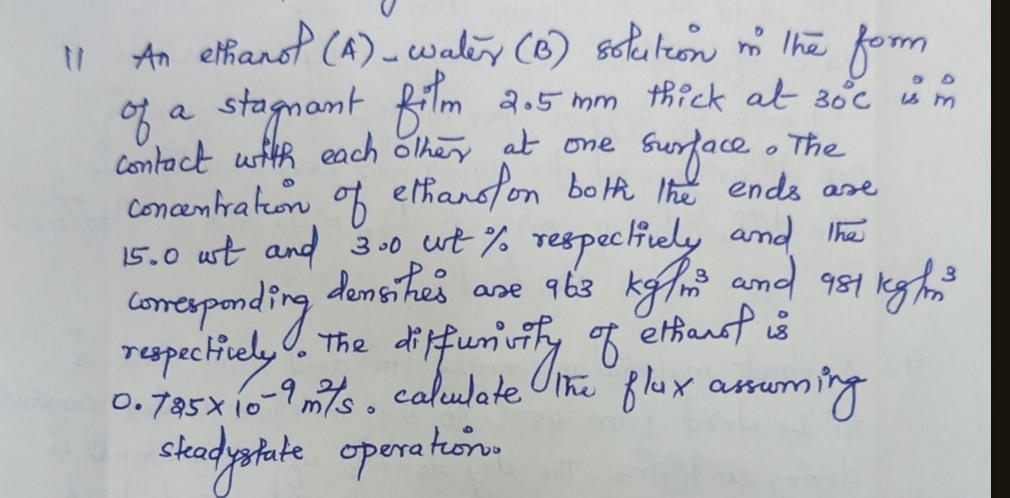 11 An ethanol (A) - water (B) solution in the form
of a stagnant film 2.5 mm thick at 30°C is in
contact with each other at one surface. The
concentration of ethanol on both the ends are
15.0 wt and 3.0 wt % respectively and the
corresponding densities are 963 kg/m³ and 981 kg/m³
respectively. The diffusivity of ethanol is
0.785 x 10⁻⁹ m²/s. calculate the flux assuming
steadystate operation.